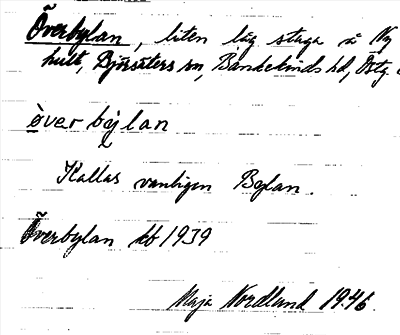 Överbylan, liten låg stuga å Ny
hult, Björsäters sn, Bankekinds hd, Östg
över bylan
Kallas vanligen Bylan.
Överbylan kb 1939
Maja Nordlund 1946.